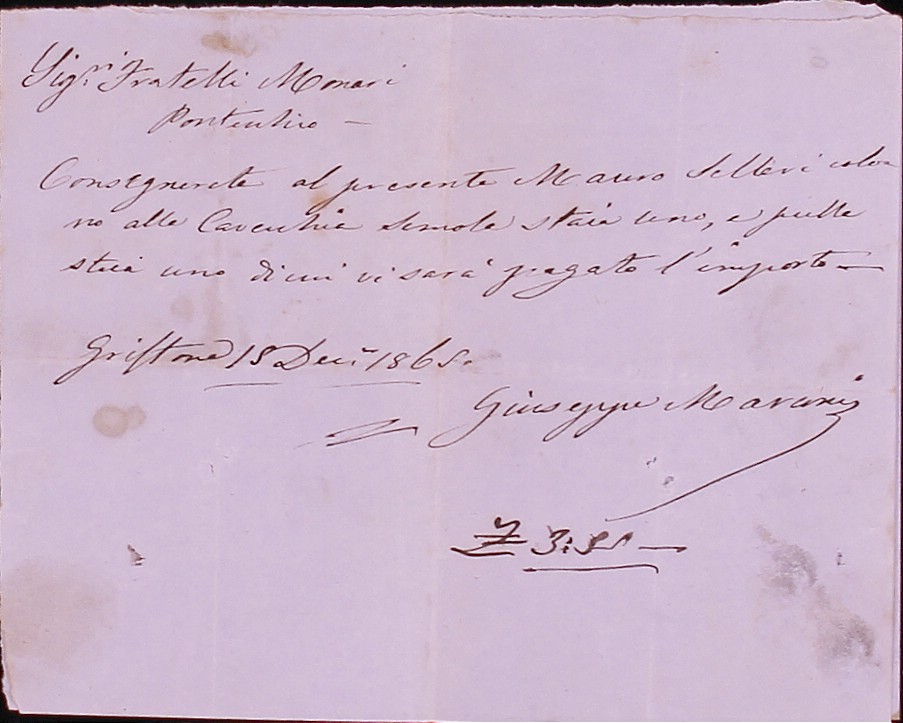 Sig.ri Fratelli Monari
Pontechio —
Consegnerete al presente Mauro Selleri colo
no alle Cavechie Semola staia uno, e pulle
staia uno di cui vi sara' pagato l'importo —
Griffone 15 Dec.e 1865.
Giuseppe Marconi